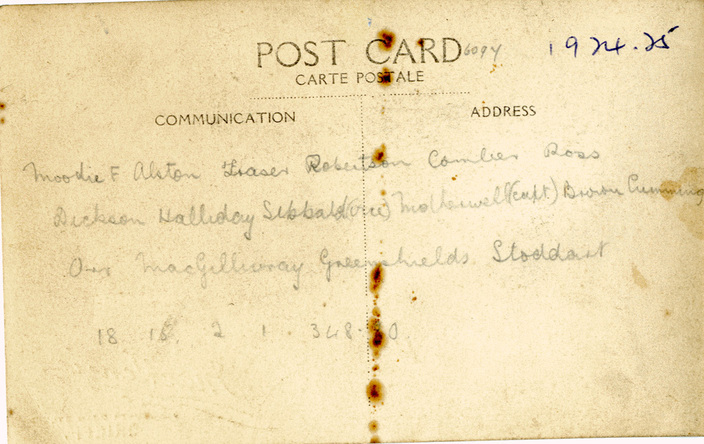 POST CARD
CARTE POSTALE
1924.25
COMMUNICATION
ADDRESS
Moodie F Alston Fraser Robertson Comber Ross
Dickson Halliday Sibbald (vice) Motherwell (capt) Brown Cumming
Orr MacGillivray Greenshields Stoddart
18 2 1 348